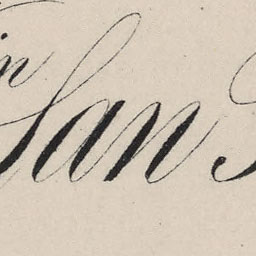 in
San